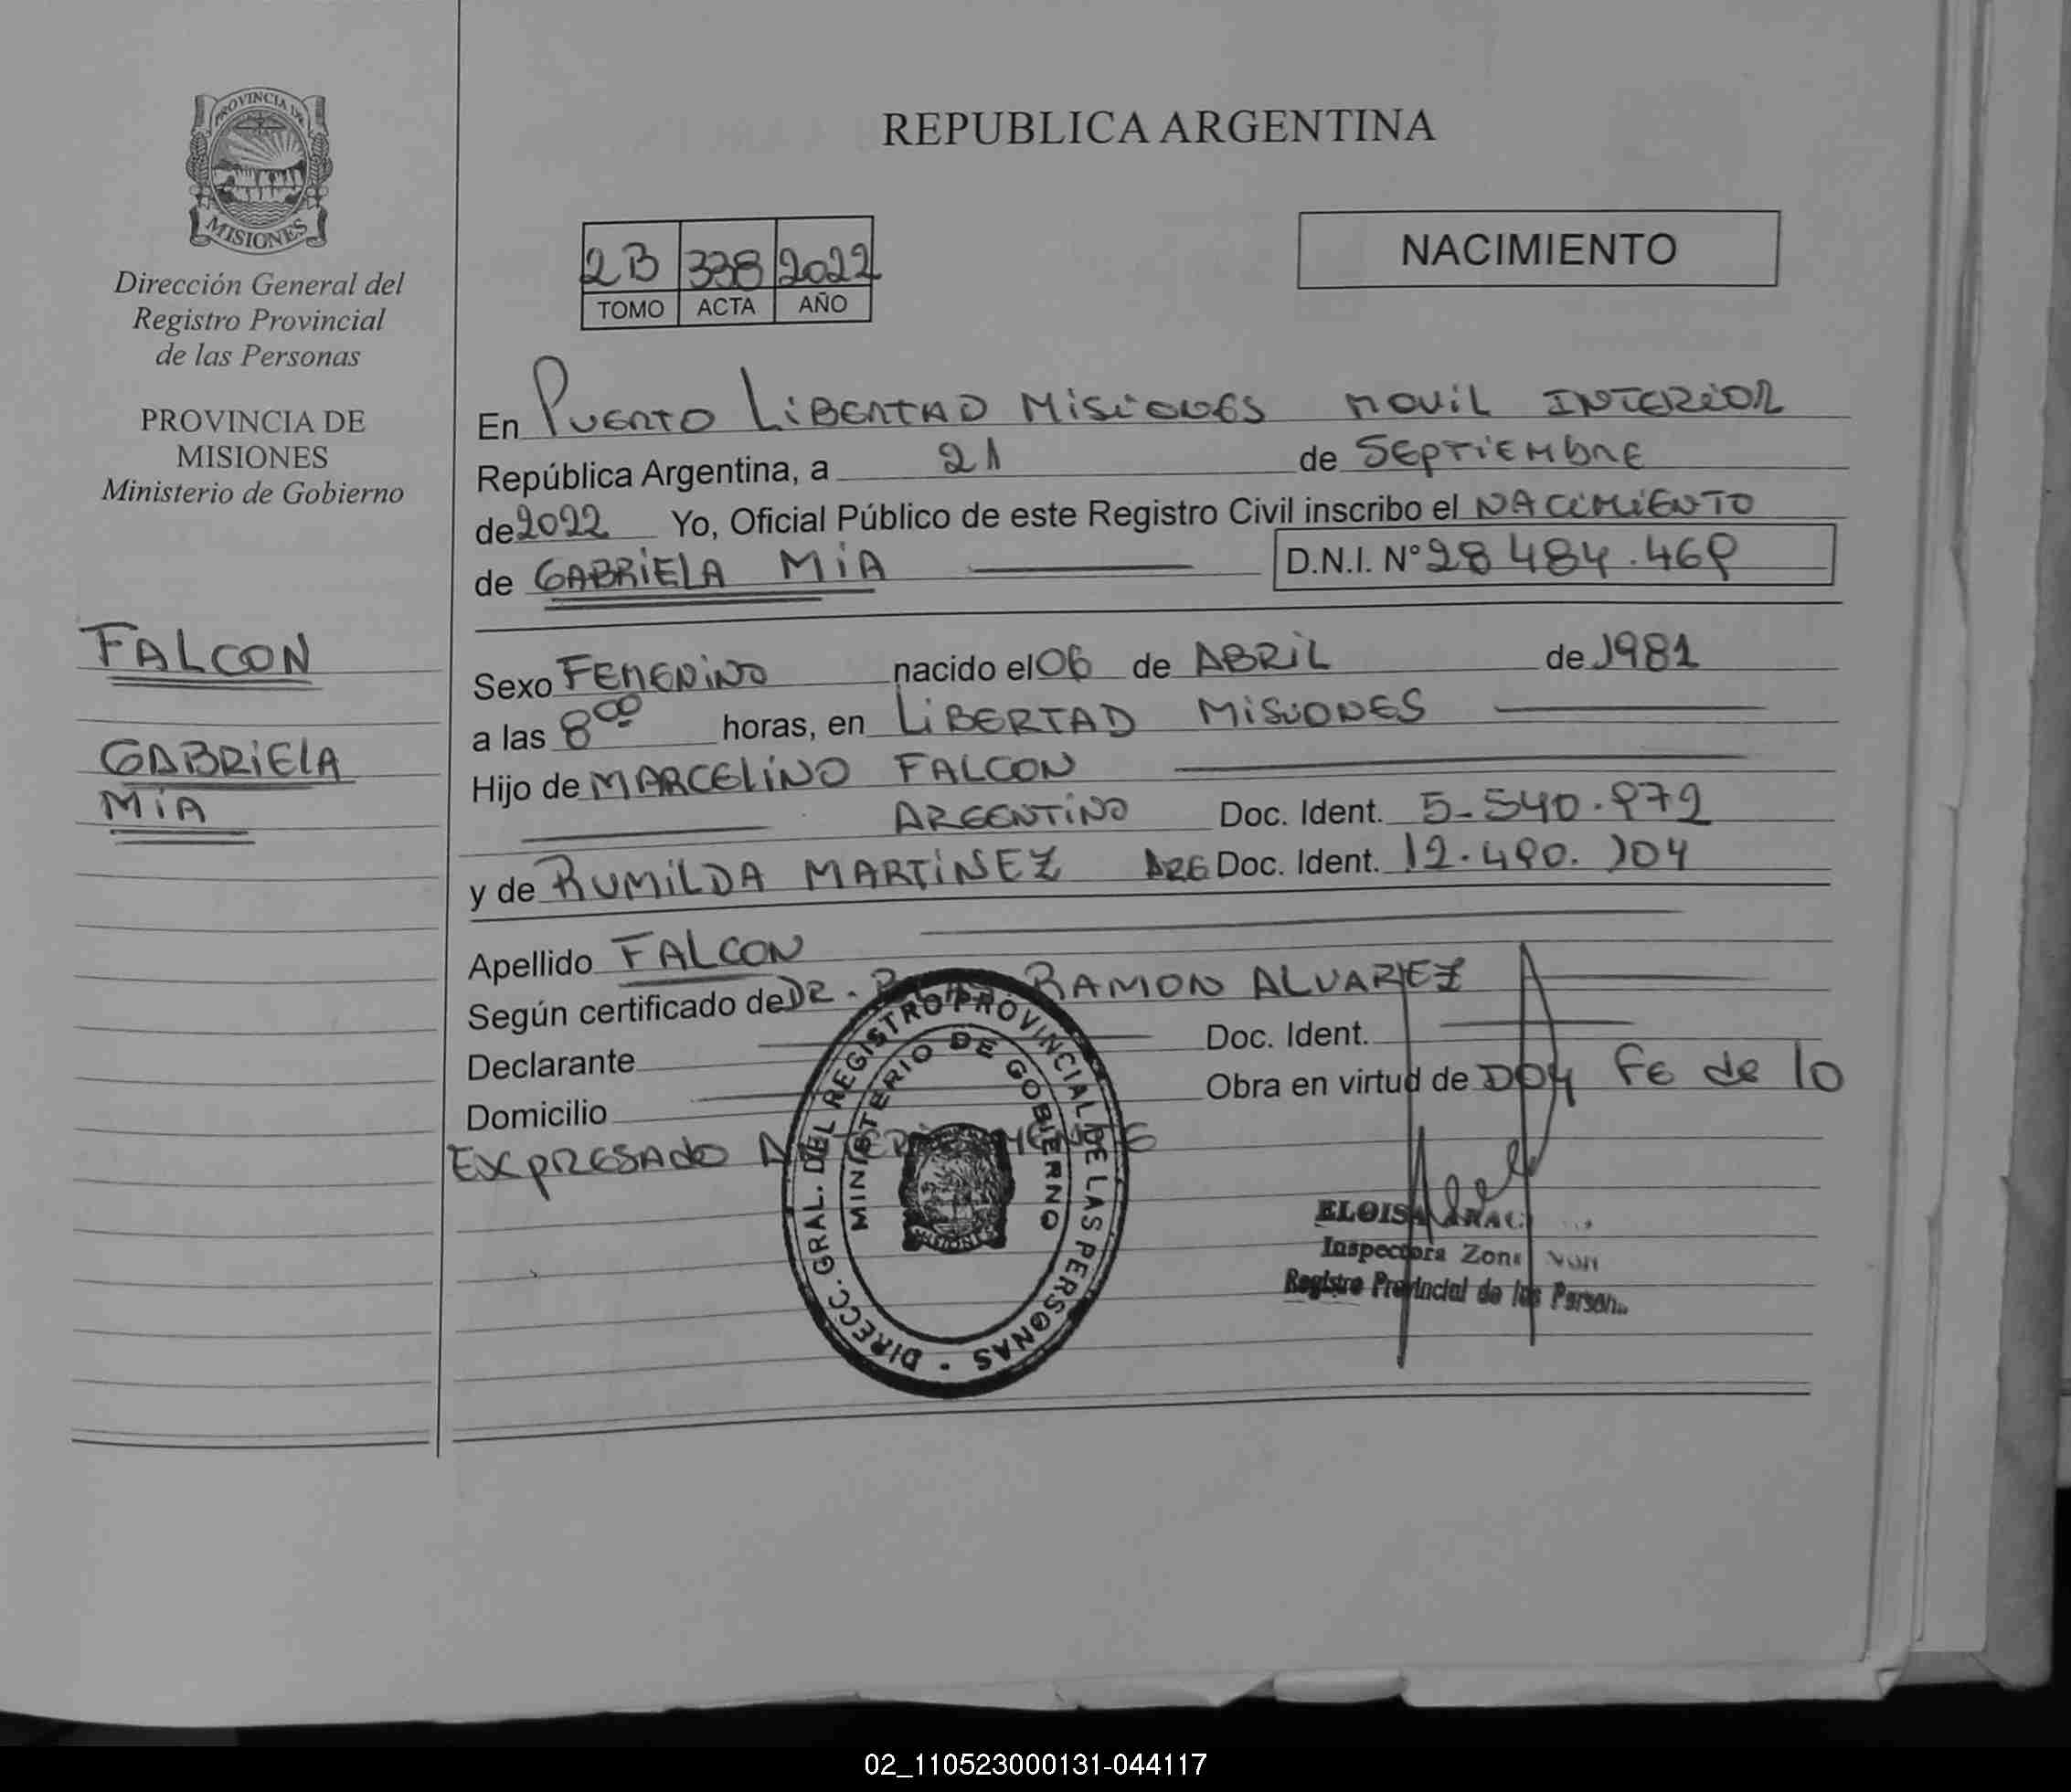 PROVINCIA DE
MISIONES
Dirección General del
Registro Provincial
de las Personas
PROVINCIA DE
MISIONES
Ministerio de Gobierno
FALCON
GABRIELA
MIA
REPUBLICA ARGENTINA
2B 338 2022
TOMO ACTA AÑO
NACIMIENTO
En PUERTO LIBERTAD MISIONES MOVIL INTERIOR
República Argentina, a 21 de SEPTIEMBRE
de 2022 Yo, Oficial Público de este Registro Civil inscribo el NACIMIENTO
de GABRIELA MIA D.N.I. N° 28 484.469
Sexo FEMENINO nacido el 06 de ABRIL de 1981
a las 8⁰⁰ horas, en LIBERTAD MISIONES
Hijo de MARCELINO FALCON
ARGENTINO Doc. Ident. 5-540.972
y de RUMILDA MARTINEZ ARG Doc. Ident. 12.490.104
Apellido FALCON
Según certificado de DR. RAMON ALVAREZ
Declarante Doc. Ident.
Domicilio Obra en virtud de DOY FE de lo
EXPRESADO
DIRECC. GRAL. DEL REGISTRO PROVINCIAL DE LAS PERSONAS
MINISTERIO DE GOBIERNO
MISIONES
ELOISA
Inspectora Zona
Registro Provincial de las
02_110523000131-044117